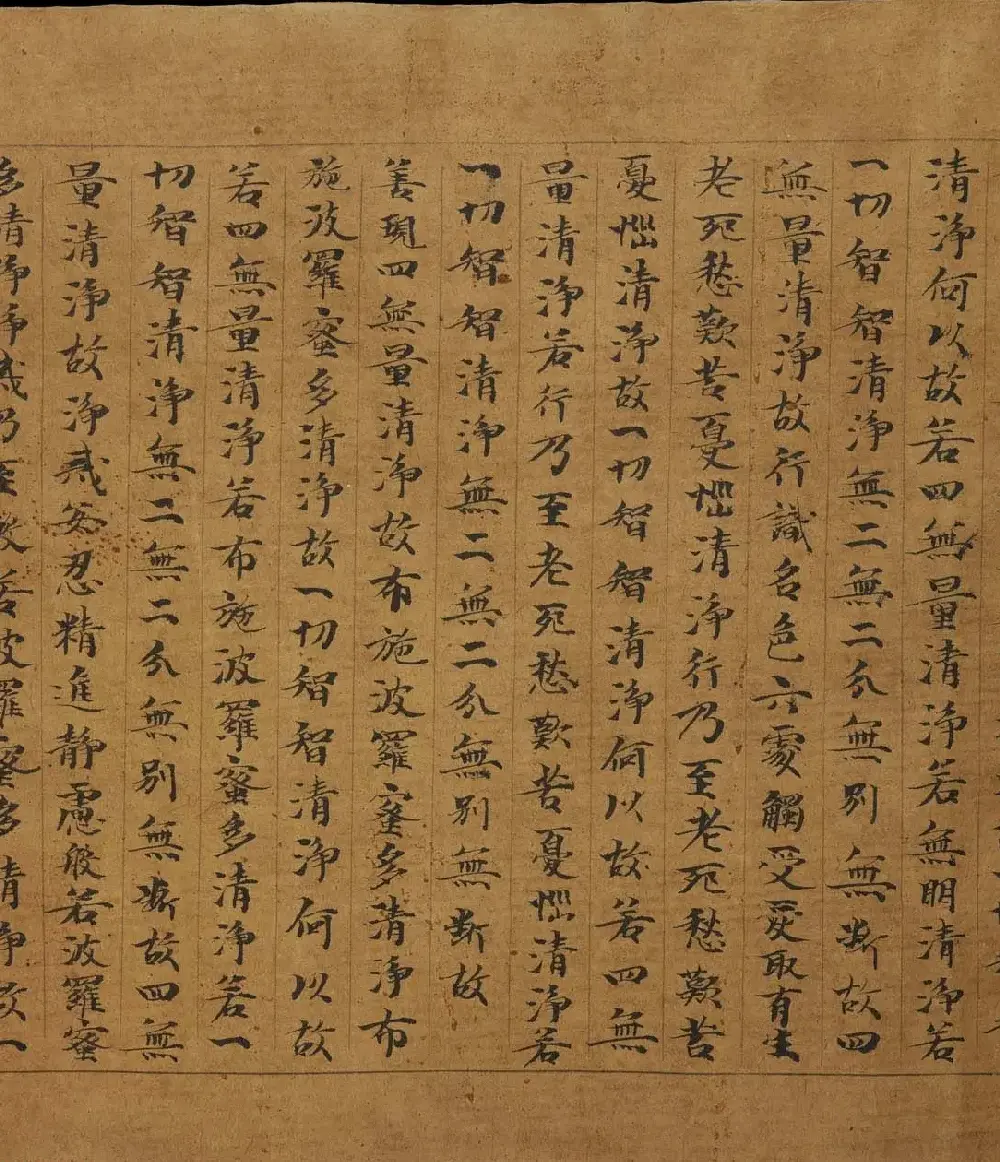 清淨何以故若四無量清淨若無明清淨若
一切智智清淨無二無二分無別無斷故四
無量清淨故行識名色六處觸受愛取有生
老死愁歎苦憂惱清淨行乃至老死愁歎苦
憂惱清淨故一切智智清淨何以故若四無
量清淨若行乃至老死愁歎苦憂惱清淨若
一切智智清淨無二無二分無別無斷故
善現四無量清淨故布施波羅蜜多清淨布
施波羅蜜多清淨故一切智智清淨何以故
若四無量清淨若布施波羅蜜多清淨若一
切智智清淨無二無二分無別無斷故四無
量清淨故淨戒安忍精進靜慮般若波羅蜜
多清淨淨戒乃至般若波羅蜜多清淨故一